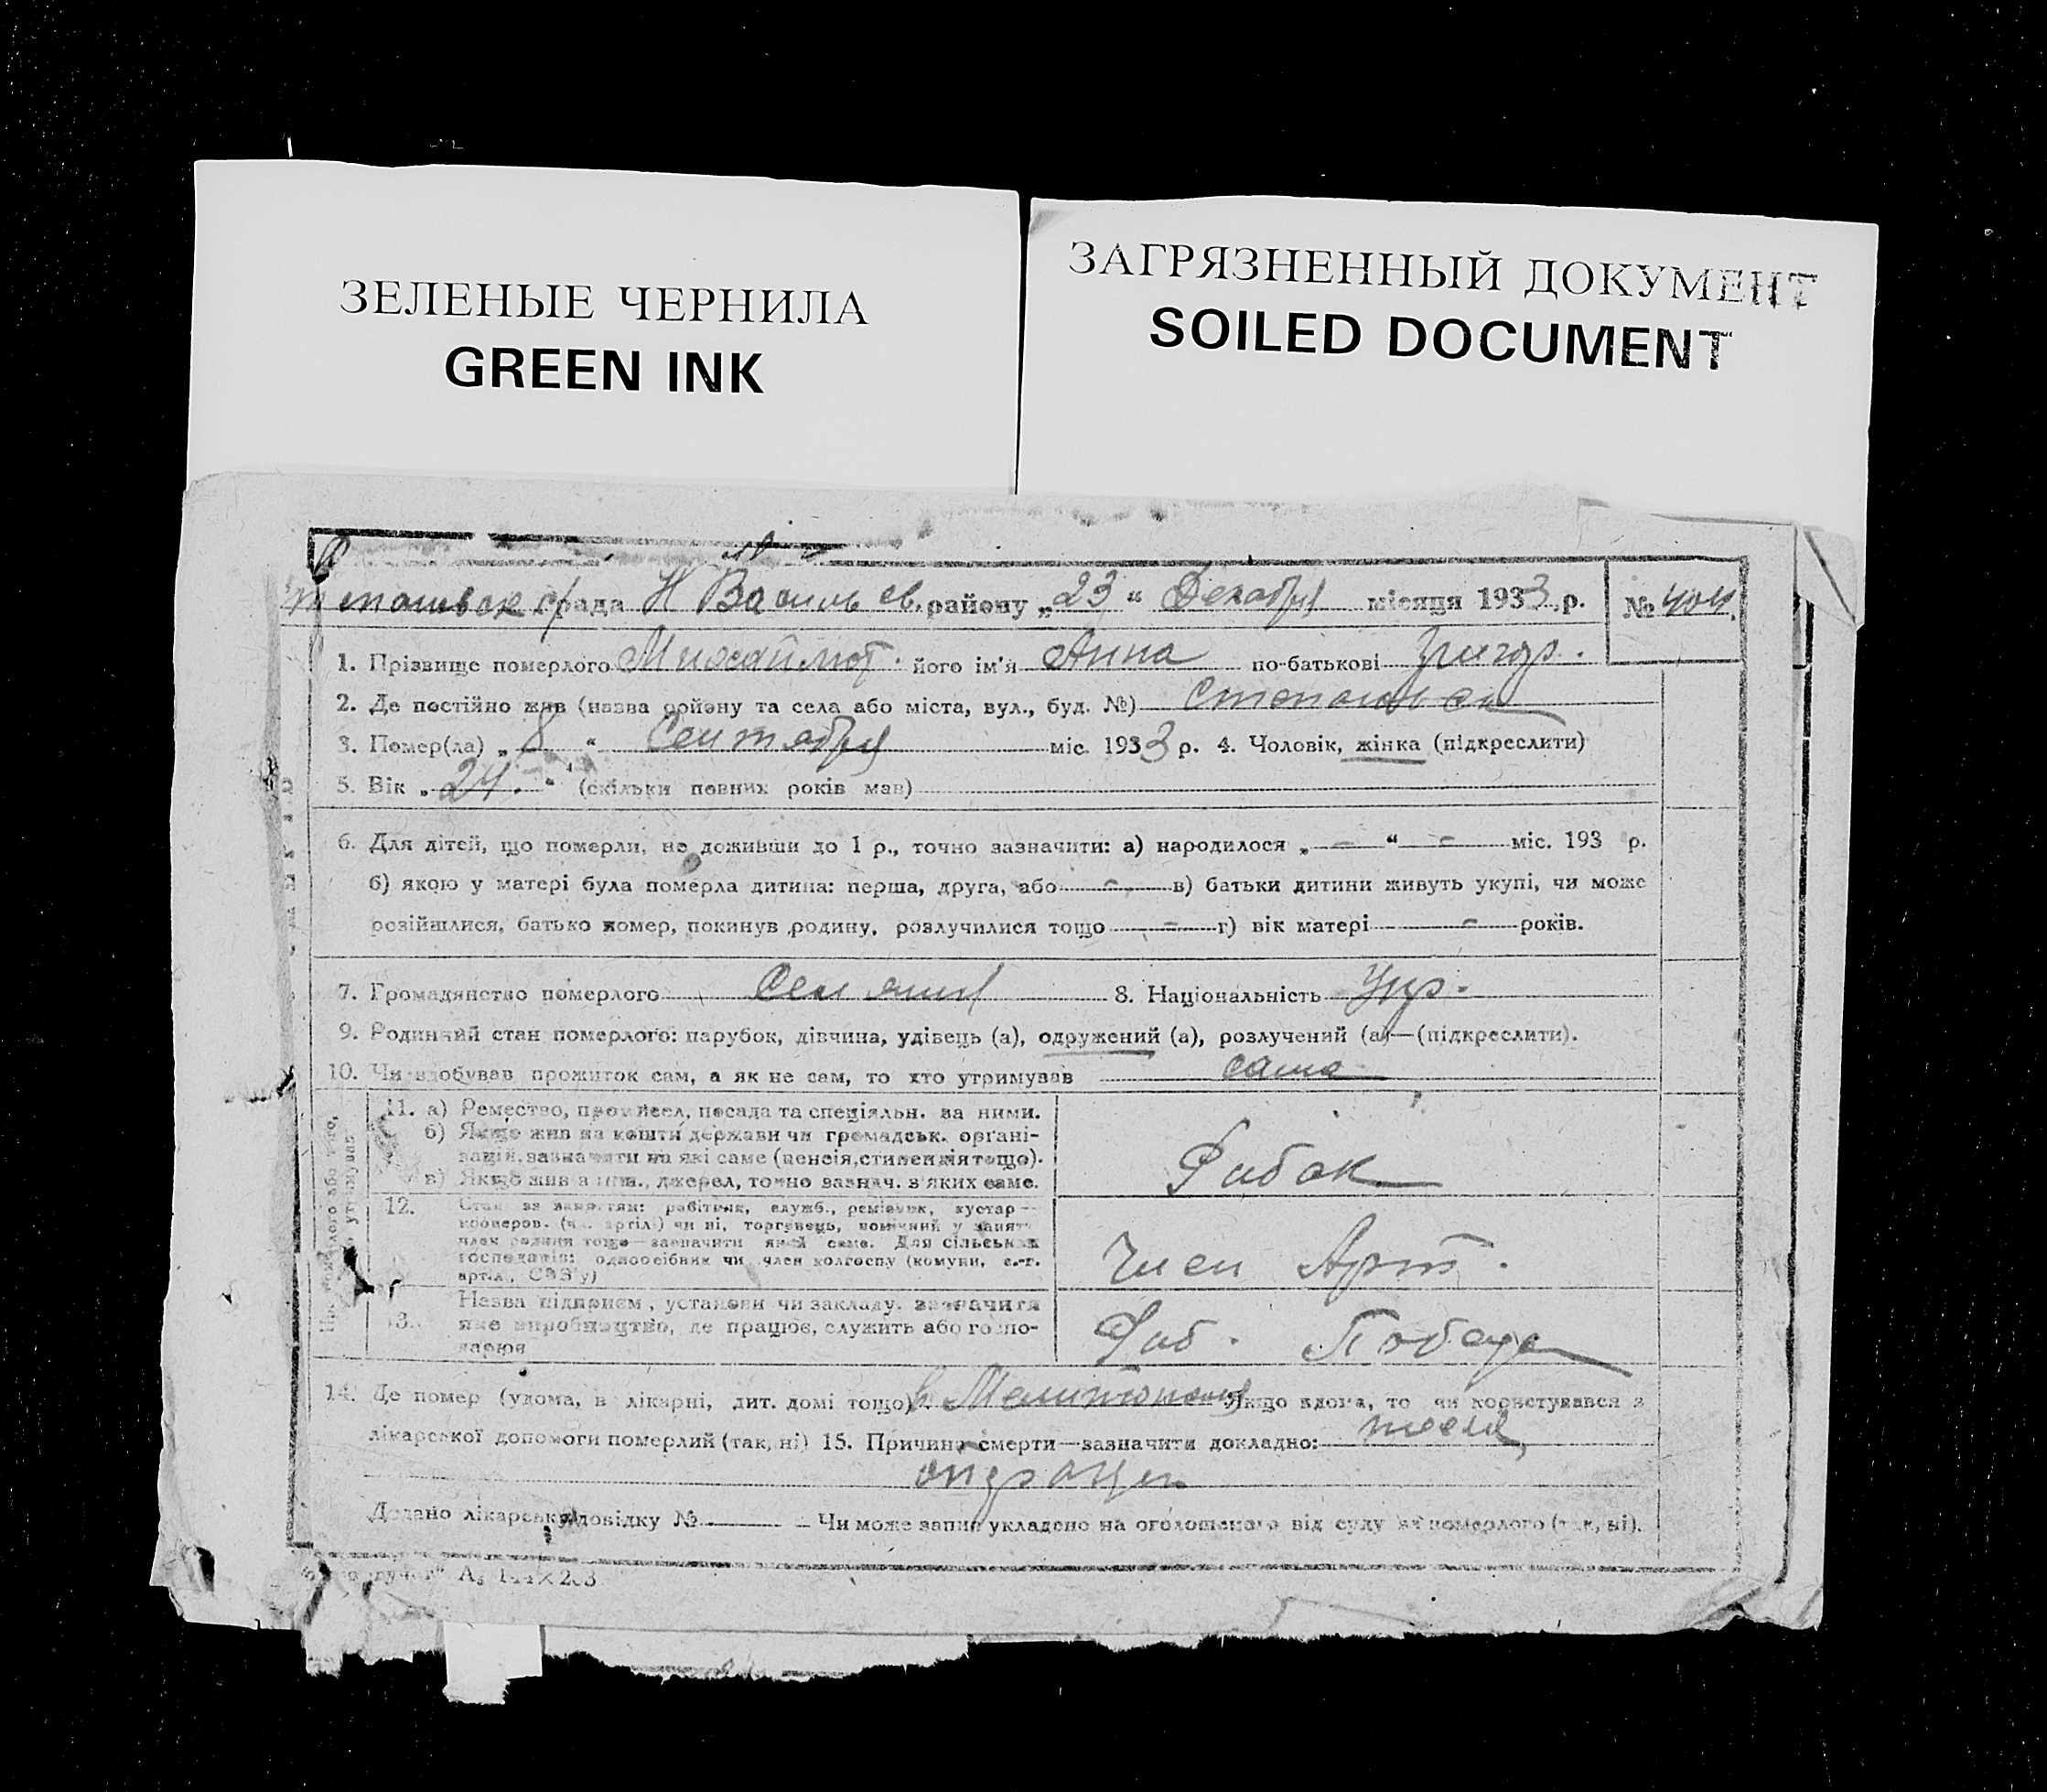 ЗЕЛЕНЫЕ ЧЕРНИЛА
GREEN INK
ЗАГРЯЗНЕННЫЙ ДОКУМЕНТ
SOILED DOCUMENT
рада Н Василь ев. району „23“ Декабря місяця 1933 р. № 404
1. Прізвище померлого його ім'я Анна по-батькові Григор.
2. Де постійно жив (назва району та села або міста, вул., буд. №)
3. Помер(ла) „8“ Сентября міс. 1933 р. 4. Чоловік, жінка (підкреслити)
5. Вік „24.“ (скільки повних років мав)
6. Для дітей, що померли, не доживши до 1 р., точно зазначити: а) народилося „ – “ – міс. 193 р.
б) якою у матері була померла дитина: перша, друга, або – в) батьки дитини живуть укупі, чи може
розійшлися, батько помер, покинув родину, розлучилися тощо – г) вік матері – років.
7. Громадянство померлого 8. Національність Укр.
9. Родинний стан померлого: парубок, дівчина, удівець (а), одружений (а), розлучений (а)—(підкреслити).
10. Чи здобував прожиток сам, а як не сам, то хто утримував сама
11. а) Ремество, промисел, посада та спеціяльн. за ними.
б) Якщо жив на кошти держави чи громадськ. органі-
зацій, зазначити на які саме (пенсія, стипендія тощо).
в) Якщо жив з інш. джерел, точно зазнач. з яких саме.
Рибак
12. Стан за заняттям: робітник, служб., ремісник, кустар—
кооперов. (чл. артілі) чи ні, торговець, помічний у занят.
член родини тощо—зазначити який саме. Для сільських
господарів: одноосібник чи член колгоспу (комуни, с.-г.
артіл., СОЗ'у)
Член Арт.
13. Назва підприєм., установи чи закладу. зазначити
яке виробництво, де працює, служить або госпо-
дарює
Риб. Победа
14. Де помер (удома, в лікарні, дит. домі тощо) в Мелитополе Якщо вдома, то чи користувався з
лікарської допомоги померлий (так, ні) 15. Причина смерти—зазначити докладно: после
операции
Додано лікарську довідку № – Чи може запис укладено на оголошеного від суду за померлого (так, ні).